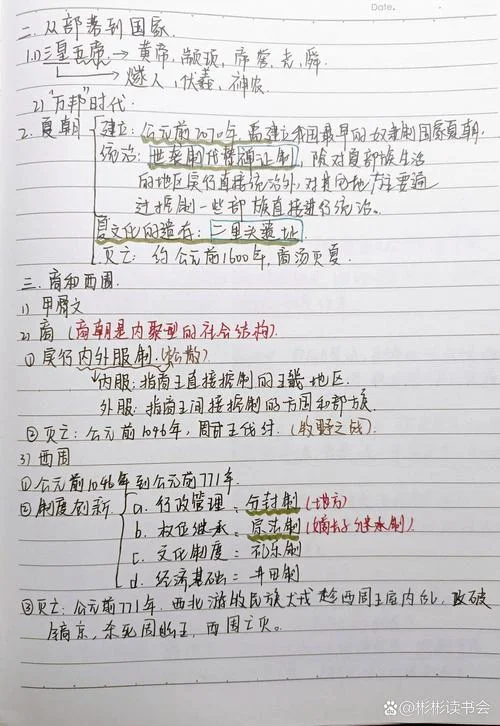 Date.
二.从部落到国家
1.1)三皇五帝→黄帝,颛顼,帝喾,尧,舜.
燧人,伏羲,神农
2)"万邦"时代
2.夏朝
建立:公元前2070年,禹建立我国最早的奴隶制国家夏朝.
统治:世袭制代替禅让制,除对夏部族生活
的地区实行直接统治外,对其他地方主要通
过控制一些部族直接进行统治。
夏文化的遗存:二里头遗址
灭亡:约公元前1600年,商汤灭夏
三.商和西周
1)甲骨文
2)商(商朝是内聚型的社会结构)
①实行内外服制.(松散)
内服:指商王直接控制的王畿地区.
外服:指商王间接控制的方国和部族.
②灭亡:公元前1046年,周武王伐纣.(牧野之战).
3)西周
①公元前1046年到公元前771年.
②制度创新
a.行政管理:分封制(地方)
b.权位继承:宗法制(嫡长子继承制)
c.文化制度=礼乐制
d.经济基础=井田制
③灭亡:公元前771年.西北游牧民族犬戎趁西周王室内乱,攻破
镐京,杀死周幽王,西周亡灭。
@彬彬读书会